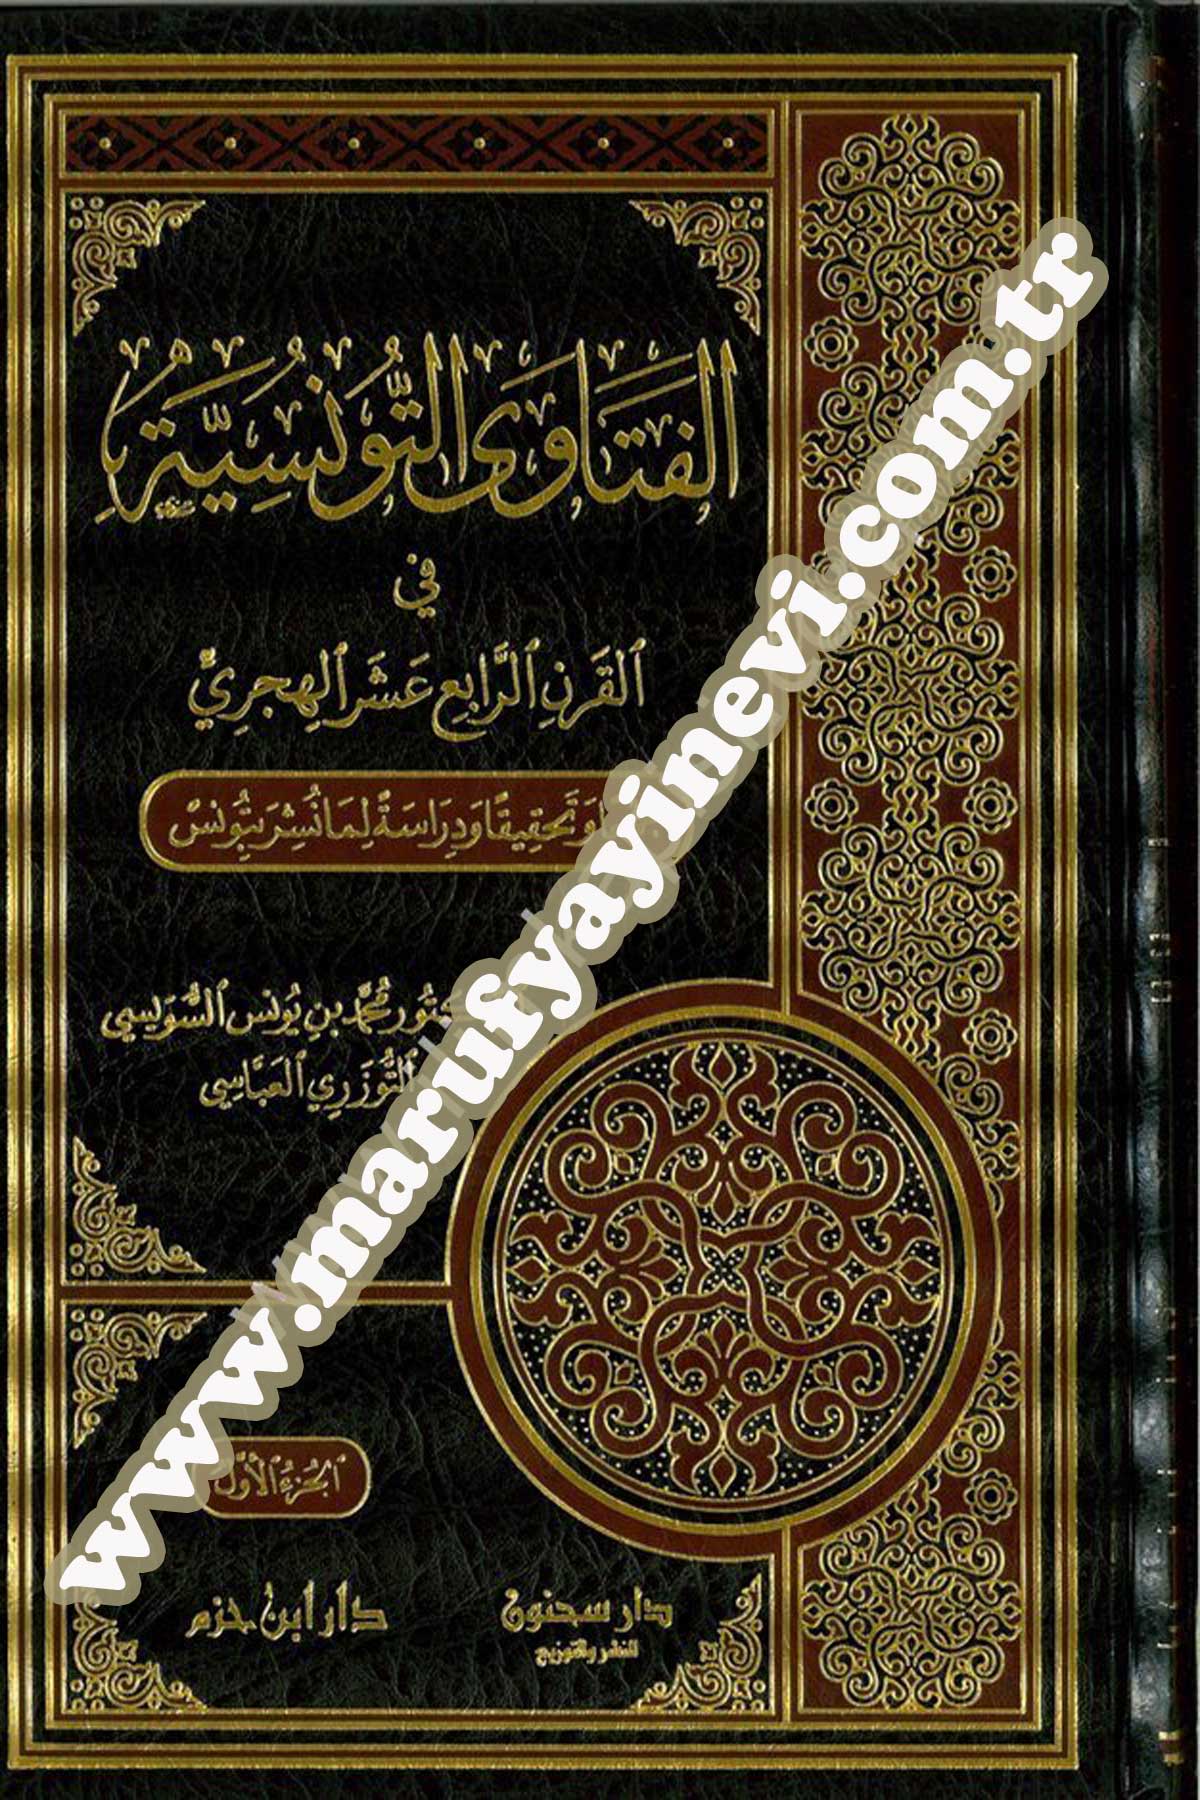 الفَتَاوَى التُّونُسِيَّةُ
في
القَرنِ الرَّابِعِ عَشَر الهِجرِيّ
وَتَحقِيقًا وَدِرَاسَةً لِمَا نُشِرَ بِتُونس
محمَّد بن يُونس السُّوَيسِي
التُّوزَرِي العَبَّاسِي
الجُزءُ الأوَّل
دار سحنون
للنشر والتوزيع
دار ابن حزم
www.marufyayinevi.com.tr